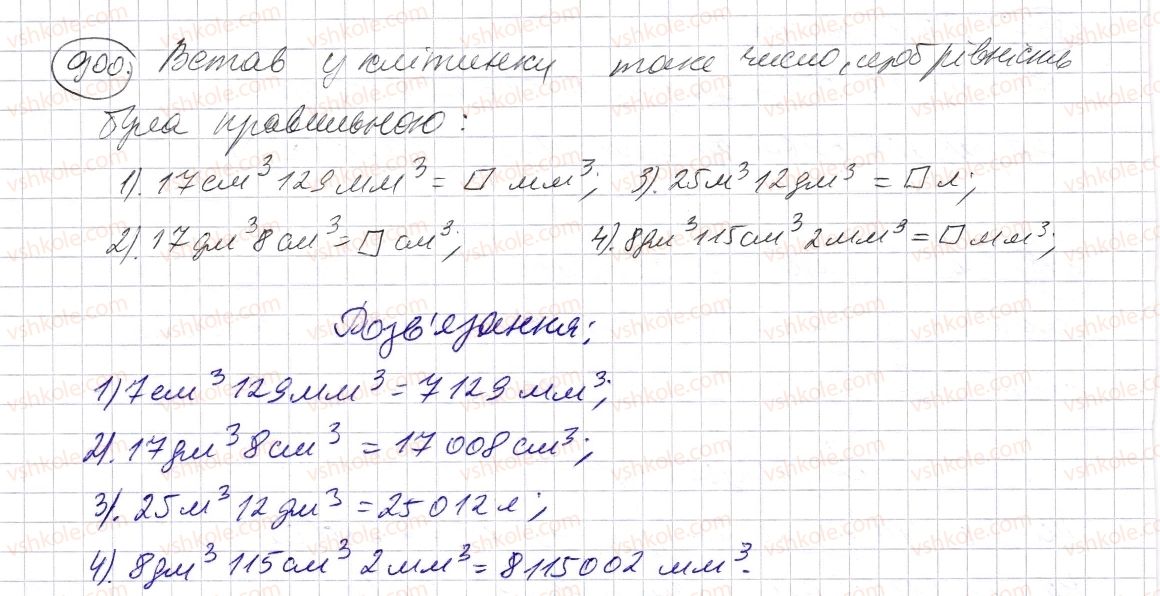 900. Встав у клітинку таке число, щоб рівність
була правильною:
1). 17см³ 129мм³ = □ мм³; 3). 25м³ 12дм³ = □ л;
2). 17дм³ 8см³ = □ см³; 4). 8дм³ 115см³ 2мм³ = □ мм³;
Розв'язання:
1) 7см³ 129мм³ = 7129 мм³;
2). 17дм³ 8см³ = 17 008 см³;
3). 25м³ 12дм³ = 25012 л;
4). 8дм³ 115см³ 2мм³ = 8115002 мм³.